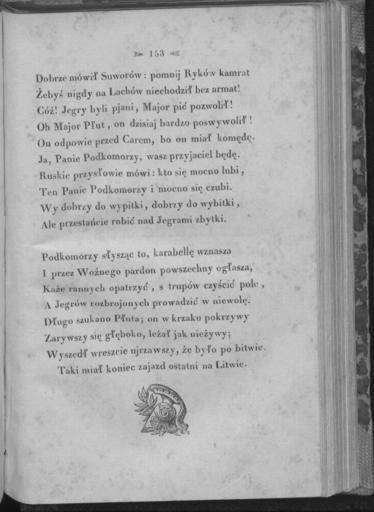 153
Dobrze mówił Suworów: pomnij Ryków kamrat
Żebyś nigdy na Lachów niechodził bez armat!
Cóż! Jegry byli pjani, Major pić pozwolił!
Oh Major Płut, on dzisiaj bardzo poswywolił!
On odpowie przed Carem, bo on miał komędę.
Ja, Panie Podkomorzy, wasz przyjaciel będę.
Ruskie przysłowie mówi: kto się mocno lubi,
Ten Panie Podkomorzy i mocno się czubi.
Wy dobrzy do wypitki, dobrzy do wybitki,
Ale przestańcie robić nad Jegrami zbytki.
Podkomorzy słysząc to, karabellę wznasza
I przez Woźnego pardon powszechny ogłasza,
Każe rannych opatrzyć, s trupów czyścić pole,
A Jegrów rozbrojonych prowadzić w niewolę.
Długo szukano Płuta; on w krzaku pokrzywy
Zarywszy się głęboko, leżał jak nieżywy;
Wyszedł wreszcie ujrzawszy, że było po bitwie.
Taki miał koniec zajazd ostatni na Litwie.